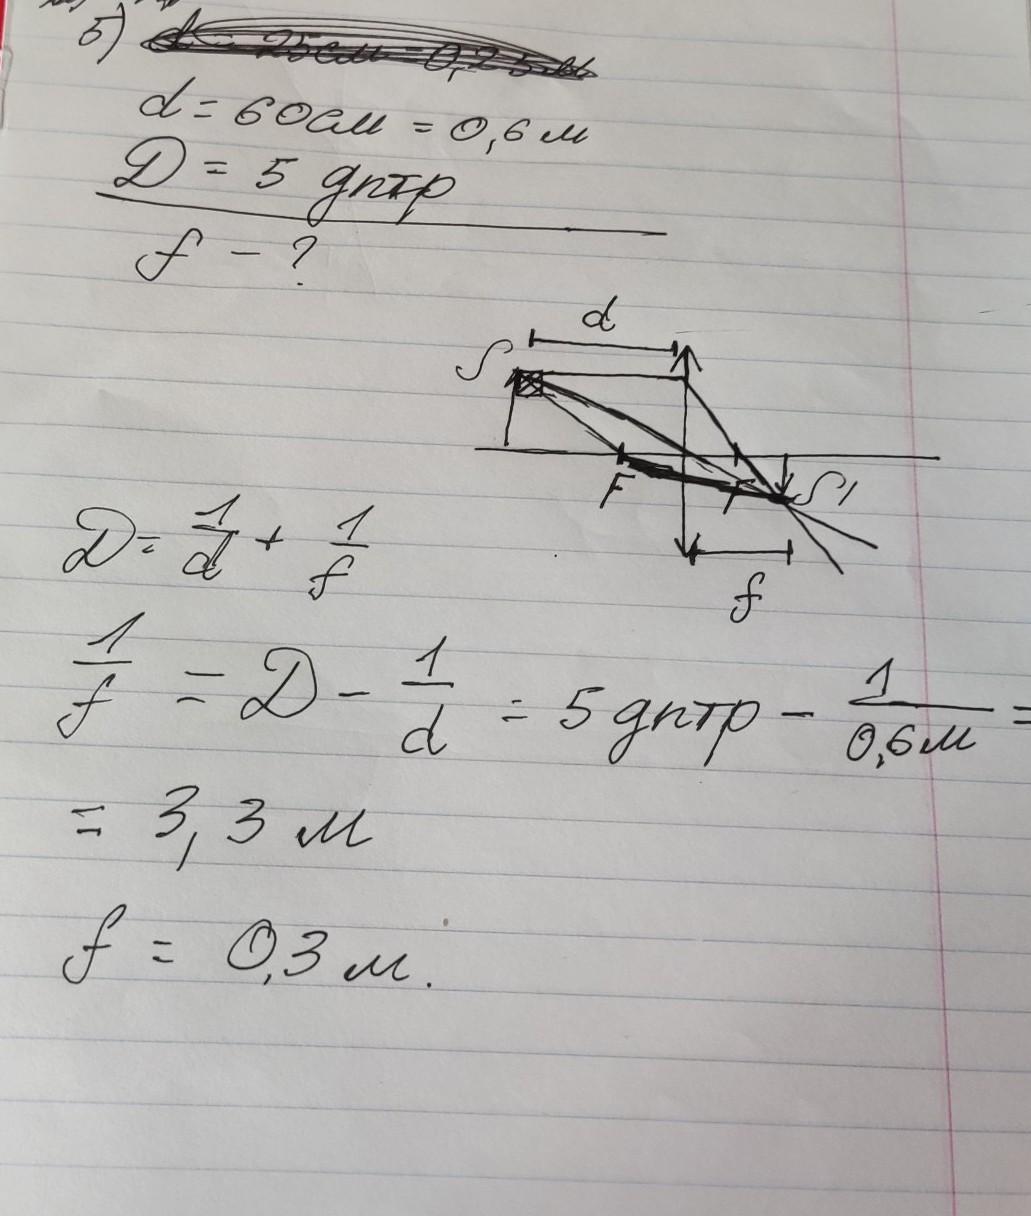 5) d = 25см = 0,25м
d = 60см = 0,6м
D = 5 дптр
f - ?
d
S
F F S'
f
D = 1/d + 1/f
1/f = D - 1/d = 5 дптр - 1/0,6м =
= 3,3 м
f = 0,3 м.